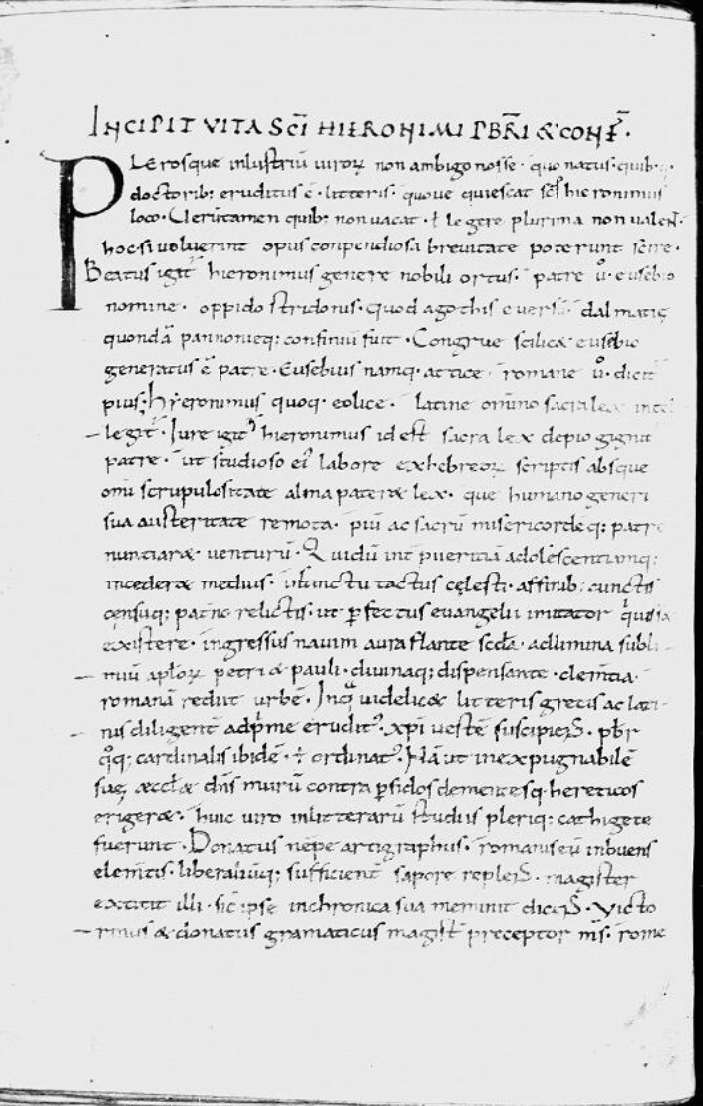 INCIPIT VITA SCĪ HIERONIMI PB̄RI & CONF̄.
PLErosque inlustriū uiroꝝ non ambigo nosse · quo natus · quib; q;
doctorib; eruditus ē · litteris · quoue quiescat sc̄s hieronimus
loco · Uerūtamen quib; non uacat · ł legere plurima non ualen̄t ·
hoc si uoluerint opus conpendiosa breuitate poterunt scire ·
Beatus igit̄ hieronimus genere nobili ortus · patre ů · eusebio
nomine · oppido stridonis · quod a gothis euersū · dalmatię
quondā pannonieq; confiniū fuit · Congrue scilic& eusebio
generatus ē patre · Eusebius namq · attice · romane ů · dicit̄
pius; hyeronimus quoq · eolice · latine omino sacra lex intel
legit̄ · Iure igit̄ hieronimus id est sacra lex de pio gignit̄
patre · ut studioso ei labore ex hebreoꝝ scriptis absque
omī scrupulositate alma pater& lex · que humano generi
sua austeritate remota · piū ac sacrū misericordieq; patrē
nuntiar& uenturū · Q uidū int̄ pueritiā adolescentiamq;
inceder& medius · instinctu tactus cęlesti · affinib; cunctis
censuq; patrio relictis · ut ꝑfectus euangelii imitator
existere · ingressus nauim aura flante scd̄a · ad limina subli
miū aploꝝ petri & pauli · diuinaq; dispensante · clem̄tia ·
romanā rediit urbē · In qua uidelic& litteris grecis ac lati
nis diligent̄ adprime erudit᾽ · xp̄i uestē suscipiens · pb̄r
q̊q; cardinalis ibidē · ē ordinat᾽ · Nā ut inexpugnabilē
suę ęccl̄ę dn̄s murū contra ꝑfidos dementesq · hereticos
eriger& · huic uiro in litterarū studiis pleriq; cathigete
fuerunt · Donatus nēpe artigraphus · romanis eū inbuens
elem̄tis · liberaliūq; sufficient̄ sapore replens · magister
extitit illi · sic ipse in chronica sua meminit dicens · Victo
rinus & donatus gramaticus magist̄ preceptor m̄s · rome